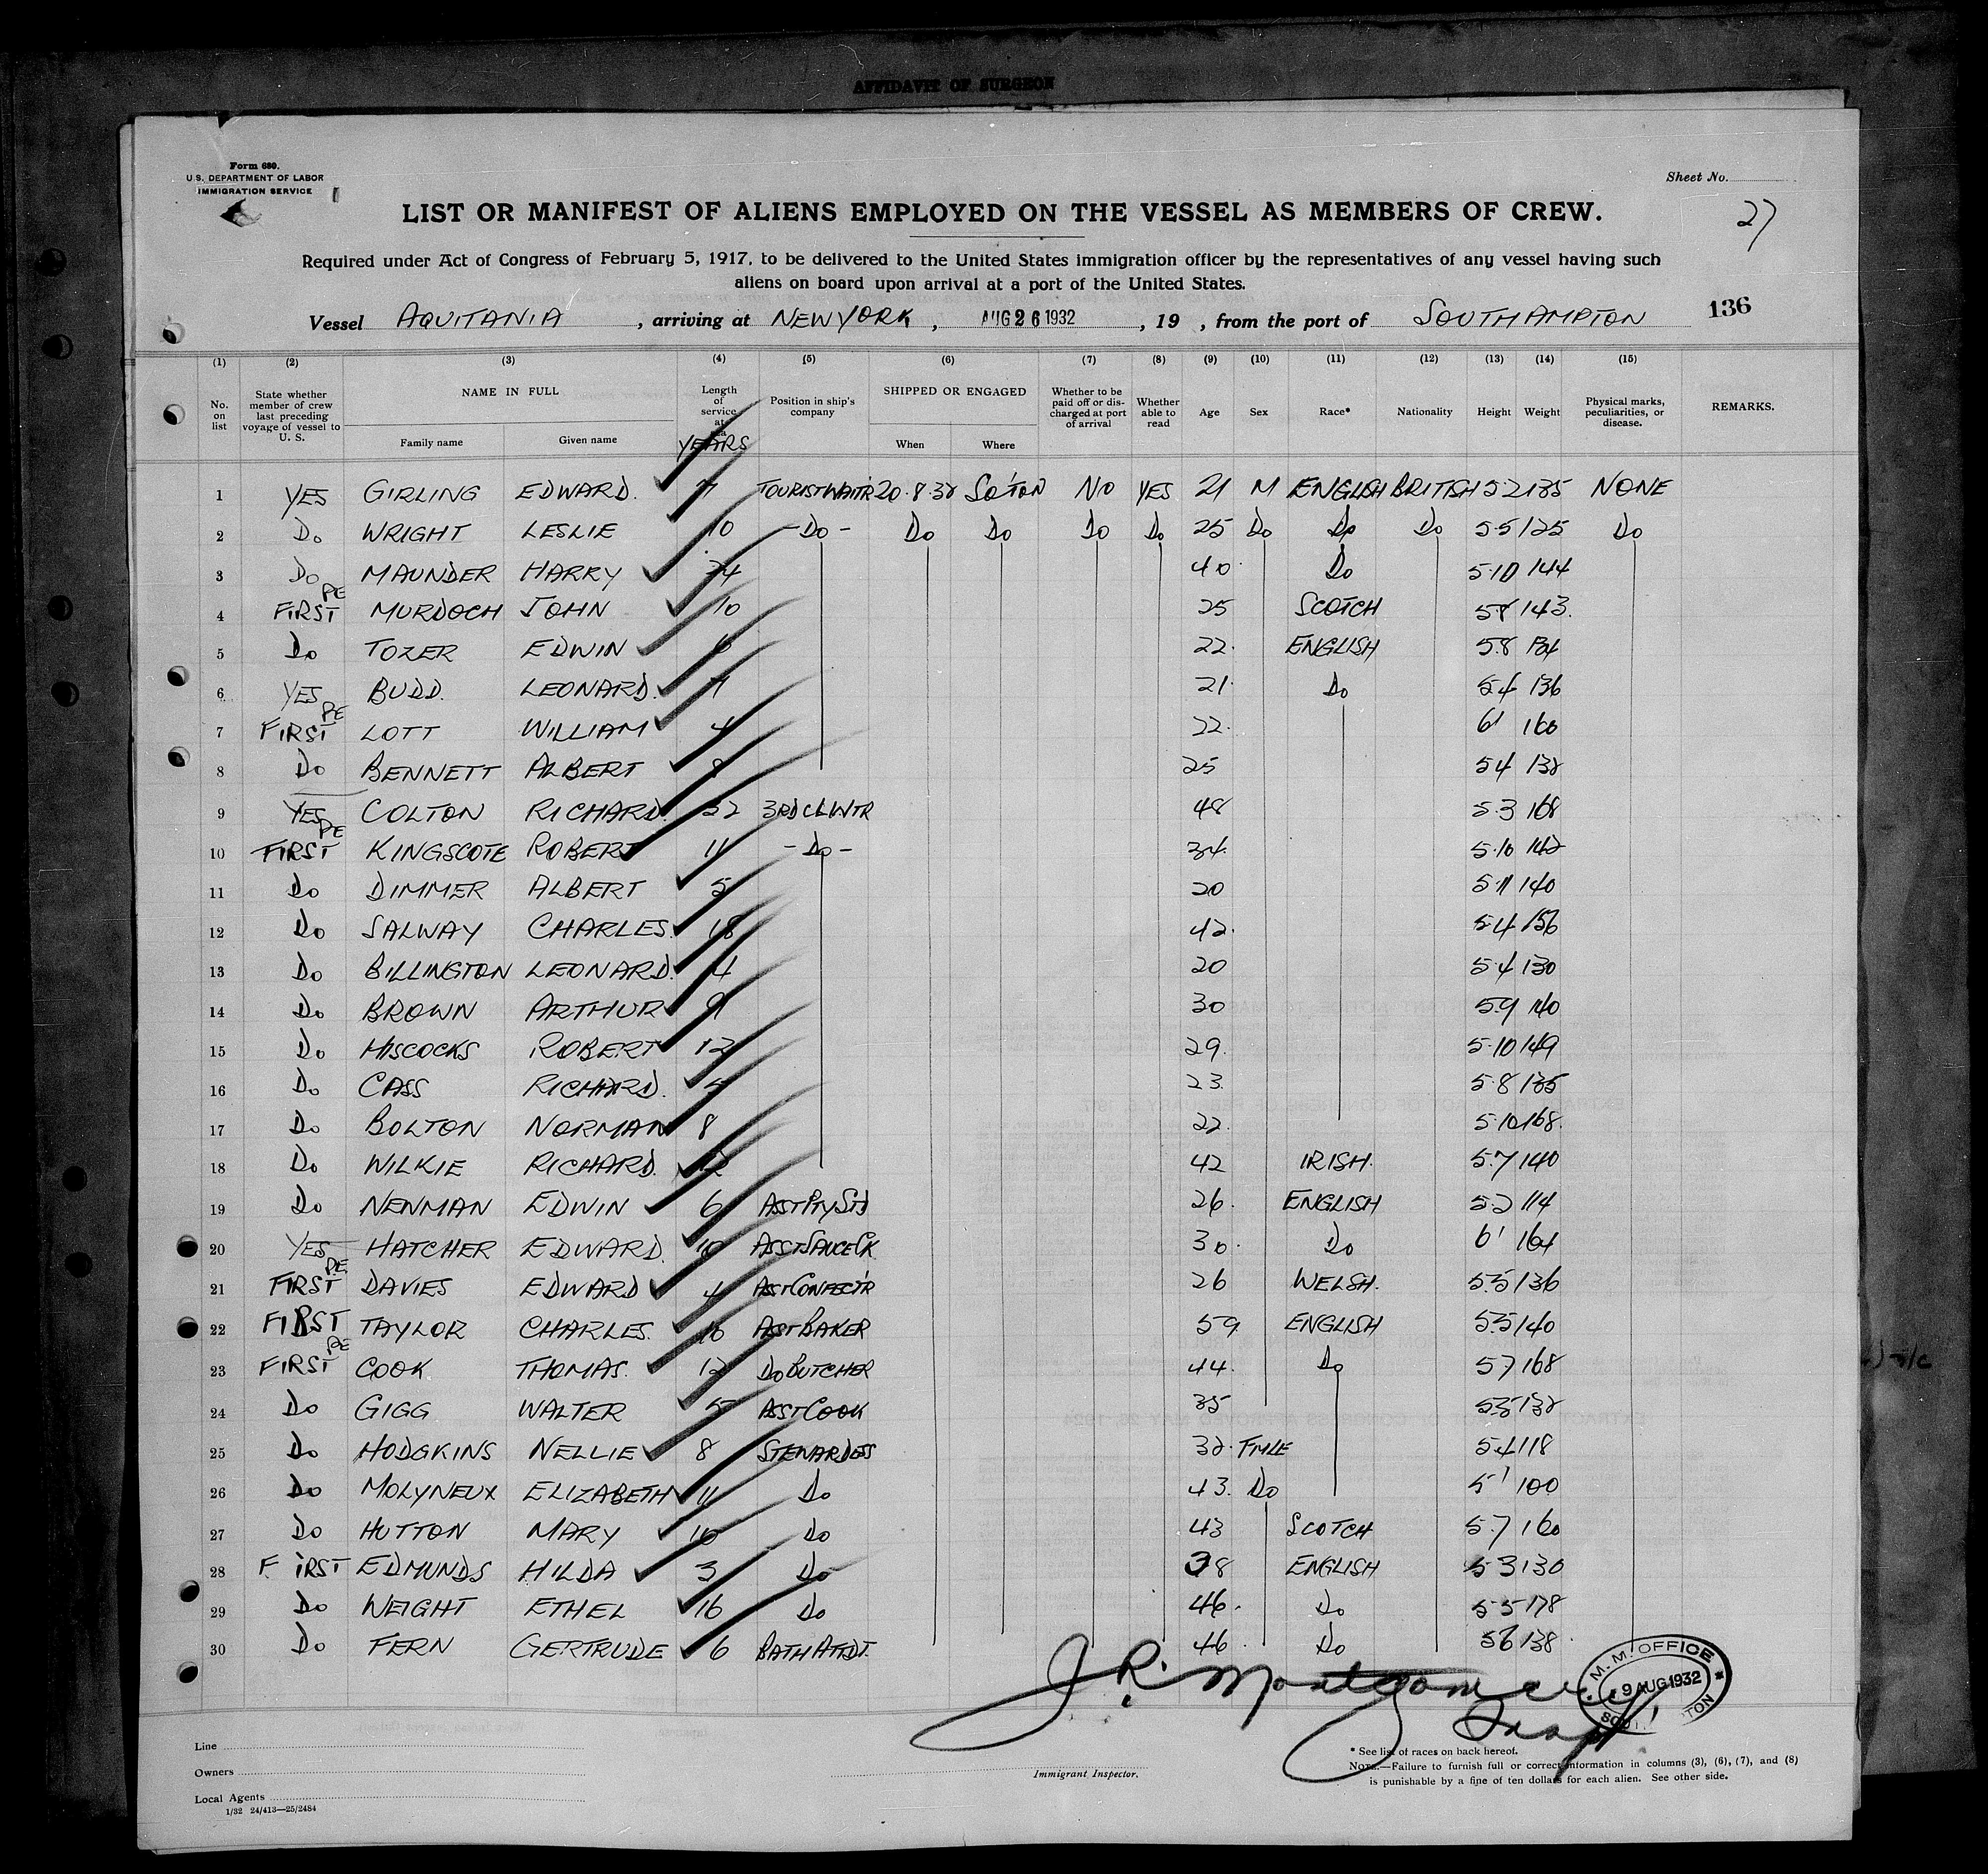 AFFIDAVIT OF SURGEON
Form 680.
U.S. DEPARTMENT OF LABOR
IMMIGRATION SERVICE
Sheet No.
27
LIST OR MANIFEST OF ALIENS EMPLOYED ON THE VESSEL AS MEMBERS OF CREW.
Required under Act of Congress of February 5, 1917, to be delivered to the United States immigration officer by the representatives of any vessel having such
aliens on board upon arrival at a port of the United States.
Vessel AQUITANIA, arriving at NEW YORK, AUG 26 1932, 19 , from the port of SOUTHAMPTON 136
(1) (2) (3) (4) (5) (6) (7) (8) (9) (10) (11) (12) (13) (14) (15)
No. on list State whether member of crew last preceding voyage of vessel to U. S. NAME IN FULL Family name Given name Length of service at sea YEARS Position in ship's company SHIPPED OR ENGAGED When Where Whether to be paid off or discharged at port of arrival Whether able to read Age Sex Race* Nationality Height Weight Physical marks, peculiarities, or disease. REMARKS.
1 YES GIRLING EDWARD. 7 TOURIST WAITR 20.8.32 SO'TON NO YES 21 M ENGLISH BRITISH 5 2 135 NONE
2 Do WRIGHT LESLIE 10 -Do- Do Do Do Do 25 Do Do Do 5.5 125 Do
3 Do MAUNDER HARRY 24 40 Do 5.10 144
4 FIRST PE MURDOCH JOHN 10 25 SCOTCH 5 8 143.
5 Do TOZER EDWIN 6 22. ENGLISH 5.8
6 YES BUDD. LEONARD. 7 21. Do 5.4 136
7 FIRST PE LOTT WILLIAM 4 22. 6' 160
8 Do BENNETT ALBERT 9 25 5 4 132
9 YES COLTON RICHARD. 22 3RD CL WTR 48 5.3 168
10 FIRST PE KINGSCOTE ROBERT 11 -Do- 34. 5.10 142
11 Do DIMMER ALBERT 5 20 5.11 140
12 Do SALWAY CHARLES. 18 42. 5.4 156
13 Do BILLINGTON LEONARD. 4 20 5.4 130
14 Do BROWN ARTHUR 9 30 5.9 140
15 Do HISCOCKS ROBERT 12 29. 5.10 149
16 Do CASS RICHARD. 23. 5.8 135
17 Do BOLTON NORMAN 8 22. 5.10 168.
18 Do WILKIE RICHARD. 42 IRISH. 5.7 140
19 Do NENMAN EDWIN 6 ASST PTY STD 26. ENGLISH 5.2 114
20 YES HATCHER EDWARD. 10 ASST SAUCE CK 30. Do 6' 164
21 FIRST PE DAVIES EDWARD 4 ASST CONFECT'R 26 WELSH. 5.5 136
22 FIRST TAYLOR CHARLES. 16 ASST BAKER 59 ENGLISH 5.5 140
23 FIRST PE COOK THOMAS. 12 Do BUTCHER 44. Do 5.7 168
24 Do GIGG WALTER 5 ASST COOK 35 5.8 132
25 Do HODGKINS NELLIE 8 STEWARDESS 32. FMLE 5.4 118
26 Do MOLYNEUX ELIZABETH 11 Do 43. Do 5' 100
27 Do HUTTON MARY 10 Do 43 SCOTCH 5.7 160
28 FIRST EDMUNDS HILDA 3 Do 38 ENGLISH 5 3 130
29 Do WEIGHT ETHEL 16 Do 46. Do 5.5 178
30 Do FERN GERTRUDE 6 BATH ATTDT. 46. Do 5 6 138
J. R. Montgomery
M. M. OFFICE
9 AUG 1932
Line
Owners
Local Agents
1/32 24/413—25/2484
Immigrant Inspector.
* See list of races on back hereof.
NOTE.—Failure to furnish full or correct information in columns (3), (6), (7), and (8)
is punishable by a fine of ten dollars for each alien. See other side.